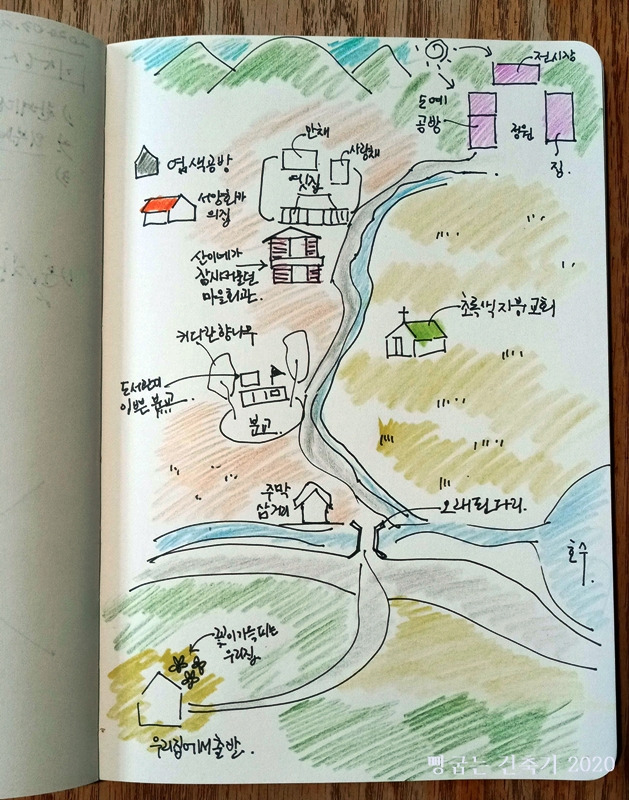 전시장
도예
공방
정원
집.
안채
사랑채
옛집
염색공방
서양화가
의집
산이네가
잠시머물던
마을회관.
초록색지붕교회
커다란향나무
도서관지
이쁜 분교.
분교.
주막
삼거리
오래된다리.
호수.
꽃이가득피는
우리집.
우리집에서출발.
빵굽는 건축가 2020